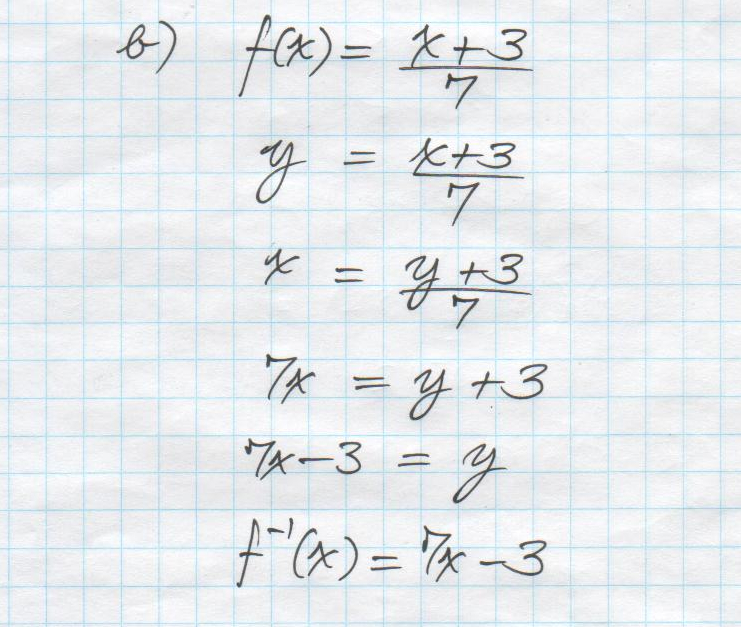 b) f(x) = (x+3)/7
y = (x+3)/7
x = (y+3)/7
7x = y + 3
7x - 3 = y
f⁻¹(x) = 7x - 3